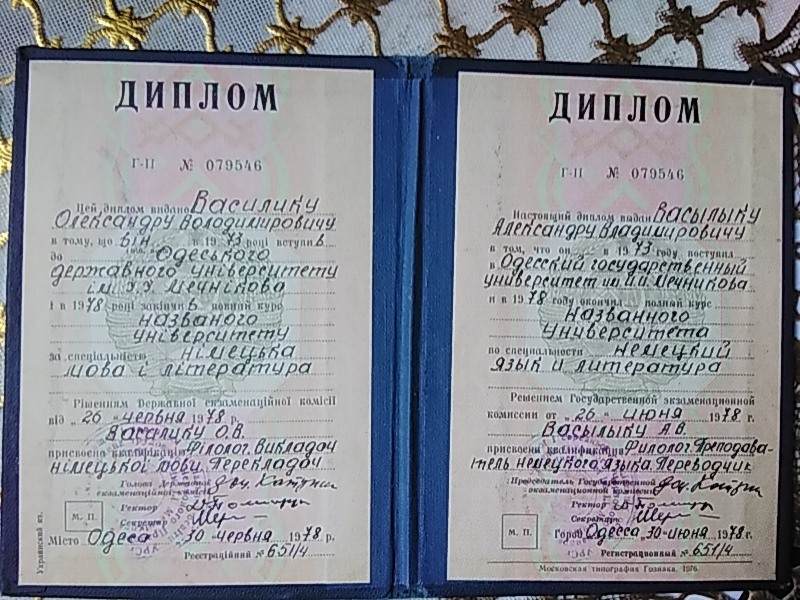 ДИПЛОМ
Г-II № 079546
Цей диплом видано Василику
Олександру Володимировичу
в тому, що він в 1973 році вступив
до Одеського
державного університету
ім. І.І. Мечнікова
і в 1978 році закінчив повний курс
названого
університету
за спеціальністю німецька
мова і література
Рішенням Державної екзаменаційної комісії
від „26“ червня 1978 р.
Василику О.В.
присвоєна кваліфікація Філолог. Викладач
німецької мови. Перекладач
Голова Державної
екзаменаційної комісії
Ректор
Секретар
М. П.
Місто Одеса 30 червня 1978 р.
Реєстраційний № 651/4
Украинский яз.
ДИПЛОМ
Г-II № 079546
Настоящий диплом выдан Васылыку
Александру Владимировичу
в том, что он в 1973 году поступил
в Одесский государственный
университет им. И.И. Мечникова
и в 1978 году окончил полный курс
названного
университета
по специальности немецкий
язык и литература
Решением Государственной экзаменационной
комиссии от „26“ июня 1978 г.
Васылыку А.В.
присвоена квалификация Филолог. Преподава-
тель немецкого языка. Переводчик
Председатель Государственной
экзаменационной комиссии
Ректор
Секретарь
М. П.
Город Одесса, 30 июня 1978 г.
Регистрационный № 651/4
Московская типография Гознака. 1976.